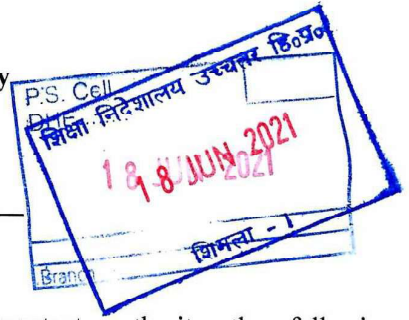 y
P.S. Cell
DHE
शिक्षा निदेशालय उच्चतर हि०प्र०
18 JUN 2021
18 JUN 2021
शिमला - 1
Branch